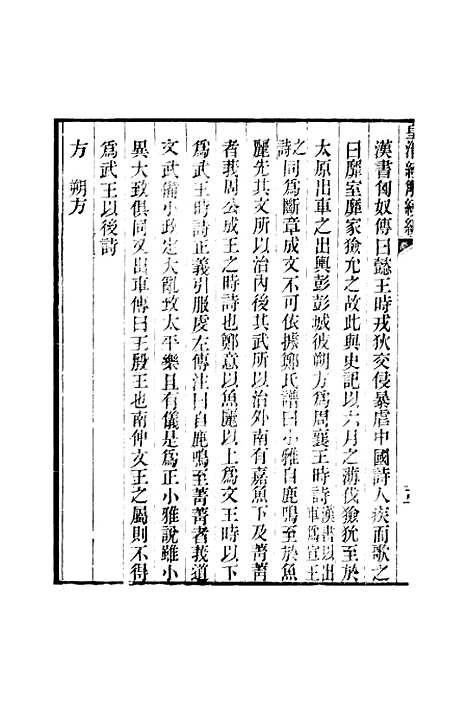 皇清經解續編
漢書匈奴傳曰懿王時戎狄交侵暴虐中國詩人疾而歌之
曰靡室靡家獫允之故此與史記以六月之薄伐獫狁至於
太原出車之出輿彭彭城彼朔方為周襄王時詩漢書以出車為宣王
詩之同為斷章成文不可依據鄭氏譜曰小雅自鹿鳴至於魚
麗先其文所以治內後其武所以治外南有嘉魚下及菁菁
者莪周公成王之時詩也鄭意以魚麗以上為文王時以下
為武王時詩正義引服虔左傳注曰自鹿鳴至菁菁者莪道
文武脩小政定大亂致太平樂且有儀是為正小雅說雖小
異大致俱同又出車傳曰王殷王也南仲文王之屬則不得
為武王以後詩
方 朔方